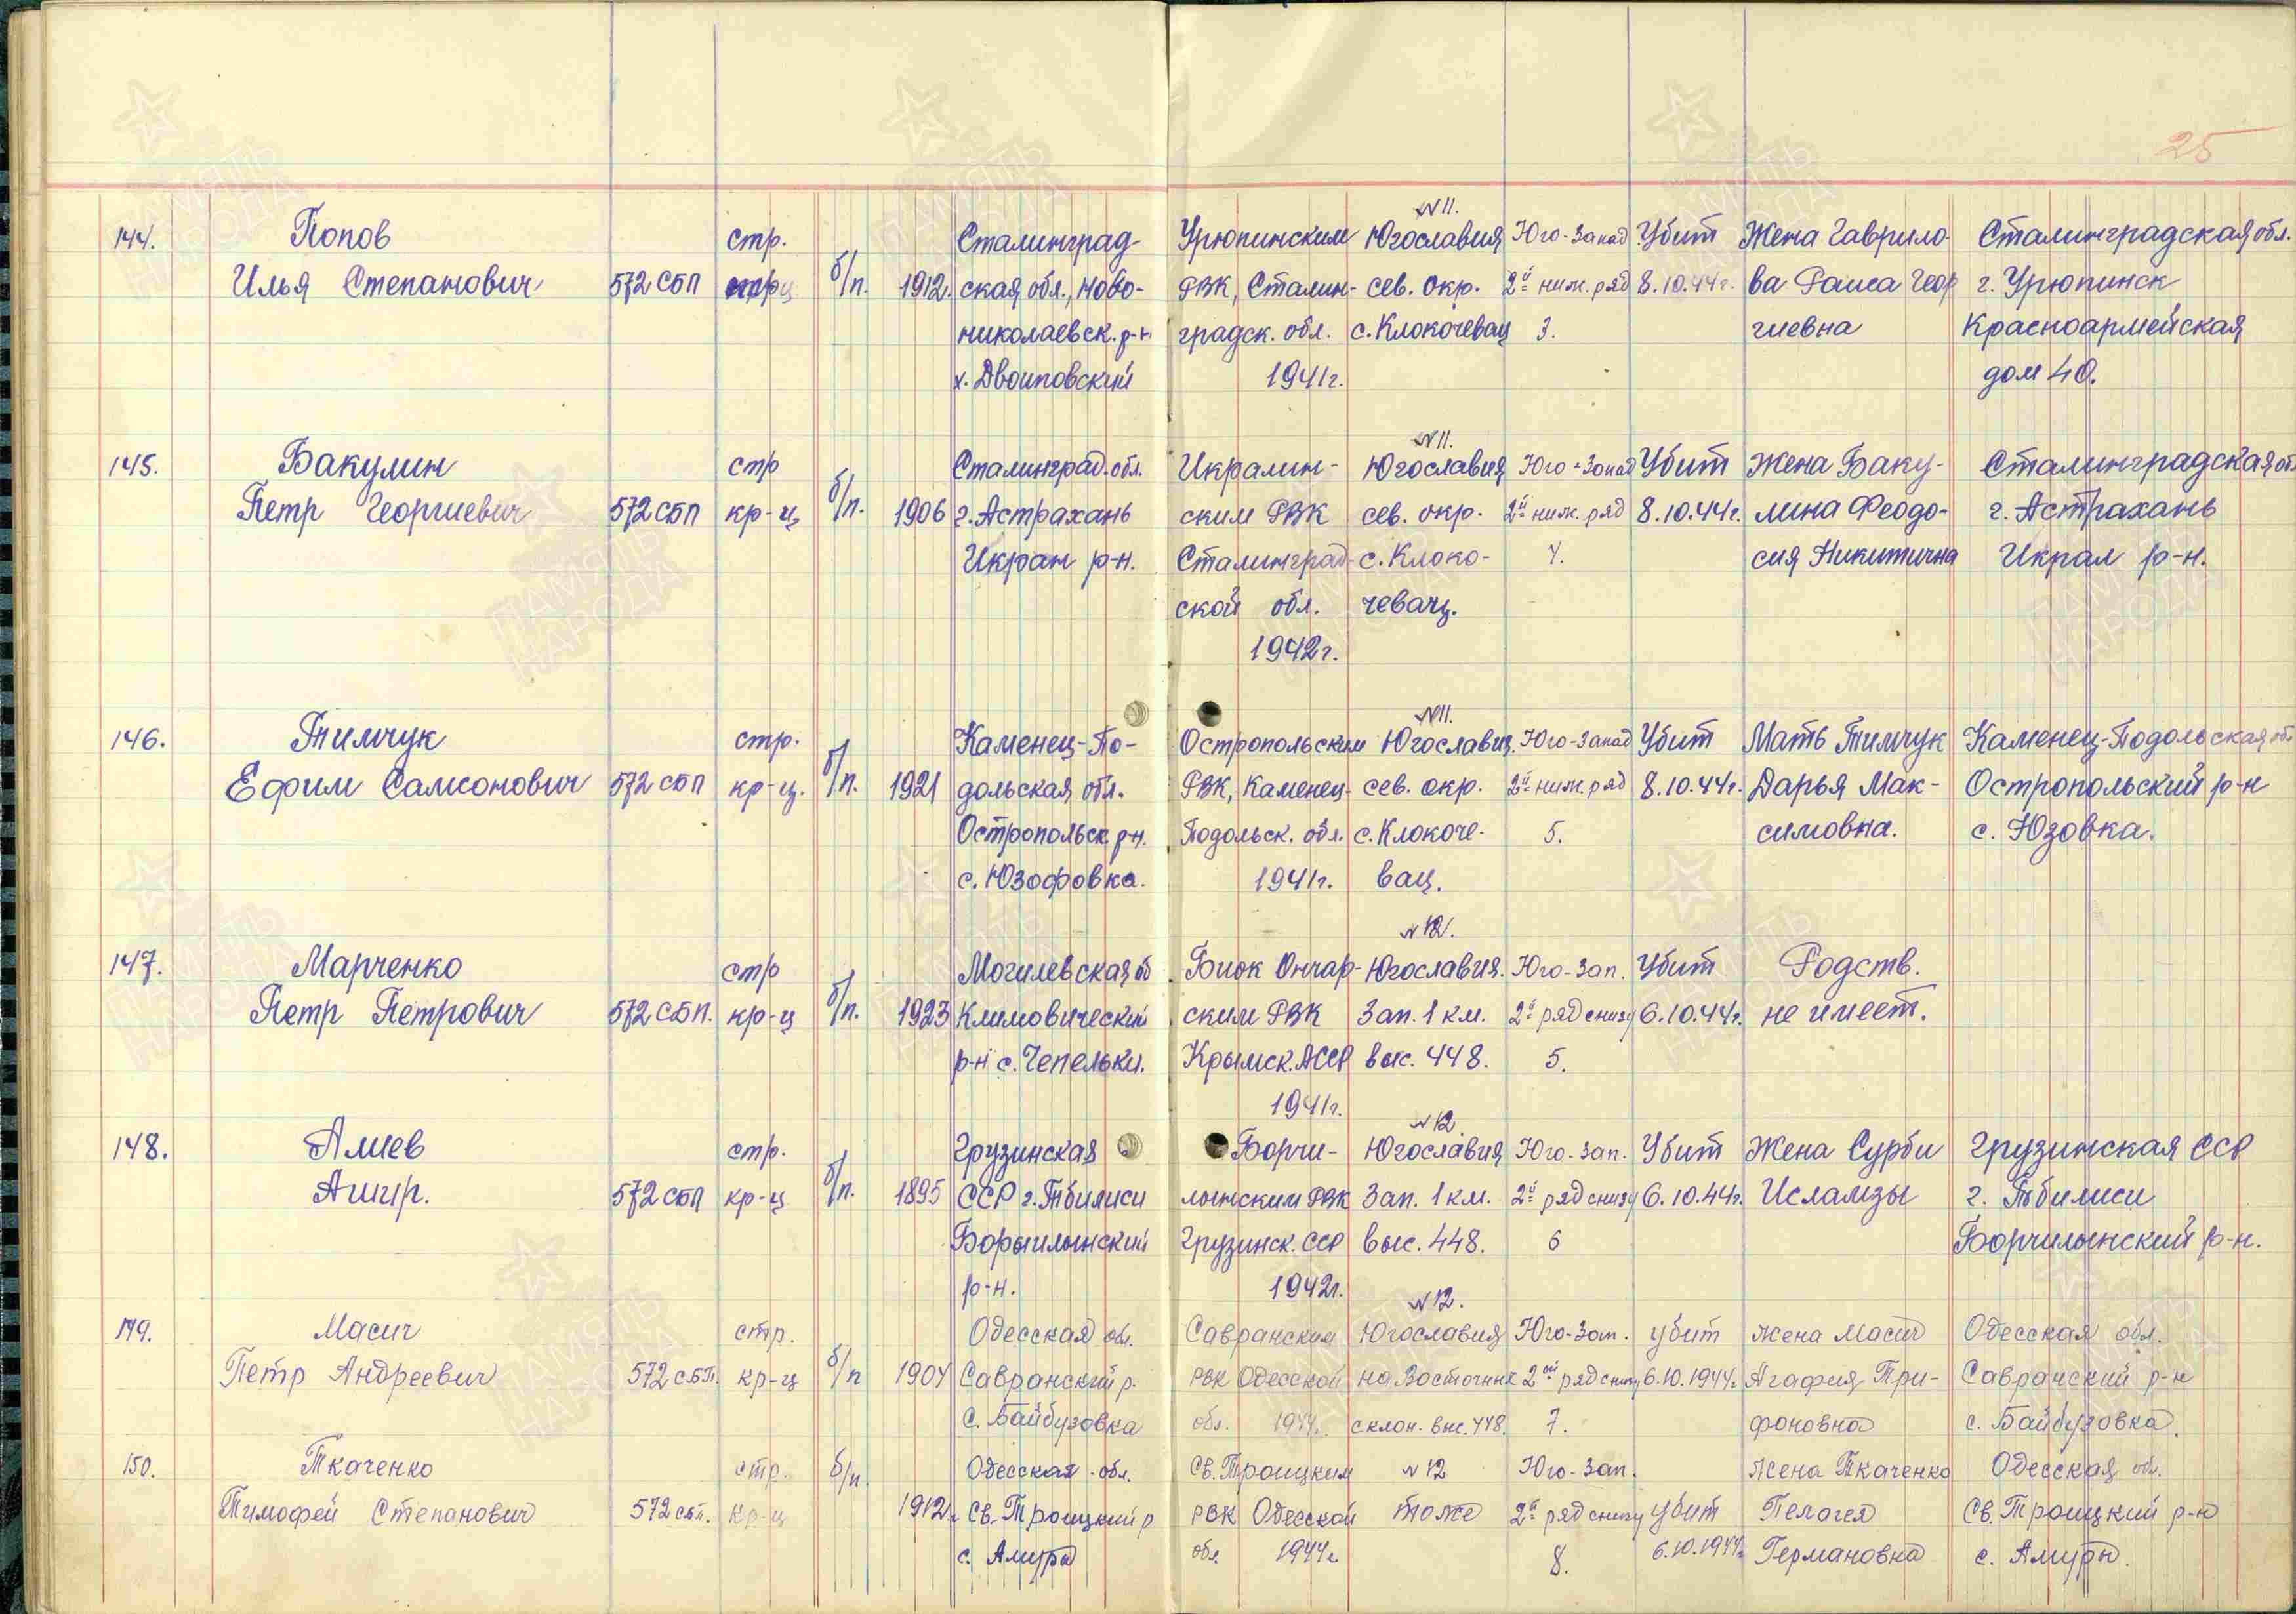 25
№11.
144. Попов стр. Сталинград- Урюпинским Югославия Юго-Запад Убит Жена Гаврило- Сталинградская обл.
Илья Степанович 572 СБП б/п. 1912. ская обл., Ново- РВК, Сталин- сев. окр. 2й ниж. ряд 8.10.44г. ва Раиса Геор г. Урюпинск
николаевск. р-н градск. обл. с. Клокочевац 3. гиевна Красноармейская
х. Двоиновский 1941г. дом 40.
№11.
145. Бакулин стр Сталинград. обл. Икралин- Югославия Юго-Запад Убит Жена Баку- Сталинградская обл
Петр Георгиевич 572 СБП кр-ц б/п. 1906 г. Астрахань ским РВК сев. окр. 2й ниж. ряд 8.10.44г. лина Феодо- г. Астрахань
Икран р-н. Сталинград- с. Клоко- 4. сия Никитична Икрал р-н.
ской обл. чевац.
1942г.
№11.
146. Тимчук стр. Каменец-По- Остропольским Югославия Юго-Запад Убит Мать Тимчук Каменец-Подольская об.
Ефим Самсонович 572 СБП кр-ц. б/п. 1921 дольская обл. РВК, Каменец- сев. окр. 2й ниж. ряд 8.10.44г. Дарья Мак- Остропольский р-н
Остропольск. р-н. Подольск. обл. с. Клокоче- 5. симовна. с. Юзовка.
с. Юзофовка. 1941г. вац.
№12.
147. Марченко стр Могилевская об Биюк Ончар- Югославия. Юго-Зап. Убит Родств.
Петр Петрович 572 СБП. кр-ц б/п. 1923 Климовический ским РВК Зап. 1 км. 2й ряд снизу 6.10.44г. не имеет.
р-н с. Чепельки. Крымск. АССР выс. 448. 5.
1941г.
№12.
148. Алиев стр. Грузинская Борчи- Югославия Юго-Зап. Убит Жена Сурби Грузинская ССР
Ашир. 572 СБП кр-ц б/п. 1895 ССР г. Тбилиси лынским РВК Зап. 1 км. 2й ряд снизу 6.10.44г. Исламзы г. Тбилиси
Борчилынский Грузинск. ССР выс. 448. 6 Борчилынский р-н.
р-н. 1942г.
№12.
149. Масич стр. Одесская обл. Савранским Югославия Юго-Зап. убит жена Масич Одесская обл.
Петр Андреевич 572 СБП. кр-ц б/п 1904 Савранский р. РВК Одесской на Восточных 2ой ряд снизу 6.10.1944г. Агафия Три- Савранский р-н
с. Байбузовка обл. 1944. склон. выс. 448. 7. фоновна с. Байбузовка.
150. Ткаченко стр. б/п Одесская обл. Св. Троицким №12 Юго-Зап. жена Ткаченко Одесская обл.
Тимофей Степанович 572 сбп. кр-ц 1912г. Св. Троицкий р РВК Одесской тоже 2й ряд снизу убит Пелогея Св. Троицкий р-н
с. Амуры обл. 1944г. 8. 6.10.1944г. Германовна с. Амуры.